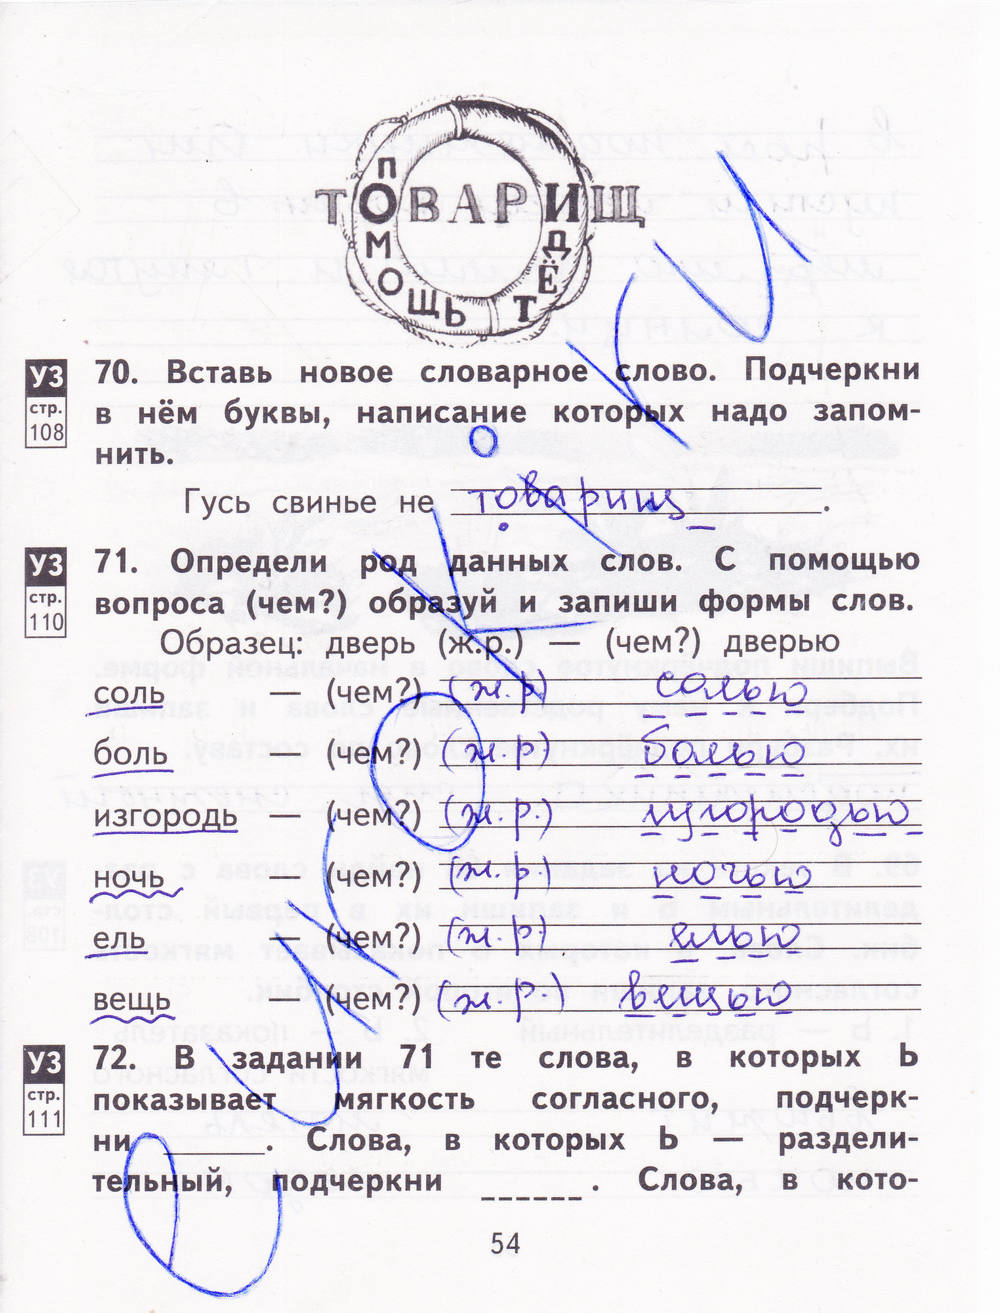 ТОВАРИЩ
ПОМОЩЬ
ИДЁТ
УЗ стр. 108
70. Вставь новое словарное слово. Подчеркни
в нём буквы, написание которых надо запом-
нить.
Гусь свинье не товарищ.
УЗ стр. 110
71. Определи род данных слов. С помощью
вопроса (чем?) образуй и запиши формы слов.
Образец: дверь (ж.р.) — (чем?) дверью
соль — (чем?) (ж.р) солью
боль (чем?) (ж.р) болью
изгородь — (чем?) (ж.р.) изгородью
ночь — (чем?) (ж.р) ночью
ель — (чем?) (ж.р) елью
вещь — (чем?) (ж.р.) вещью
УЗ стр. 111
72. В задании 71 те слова, в которых Ь
показывает мягкость согласного, подчерк-
ни ______. Слова, в которых Ь — раздели-
тельный, подчеркни ______. Слова, в кото-
54